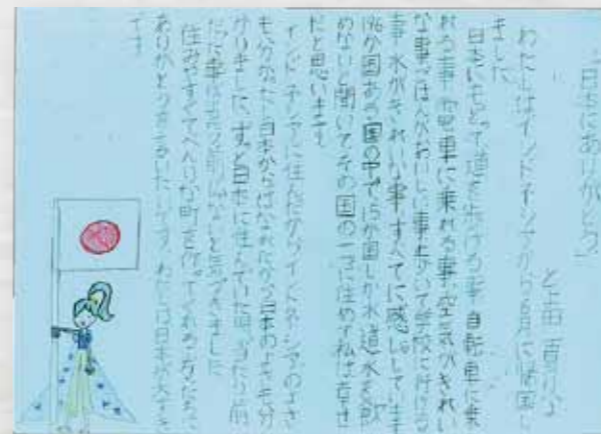 「日本にありがとう」
わたしはインドネシアから6月に帰国し
ました。
日本にもどって道を歩ける事、自転車に乗
れる事、電車に乗れる事、空気がきれい
な事、ごはんがおいしい事、歩いて学校に行ける
事、水がきれいな事すべてに感しゃしています。
196か国ある国の中で、15か国しか水道水を飲
めないと聞いてその国の一つに住めて私は幸せ
だと思います。
インドネシアに住んだからインドネシアのよさ
も分かったし日本からはなれたから日本のよさも分
かりました。ずっと日本に住んでいた時、当たり前
だった事は当たり前じゃないと気づきました。
住みやすくてべんりな町を作ってくれた方たちに
ありがとうを言いたいです。わたしは日本が大すき
です。